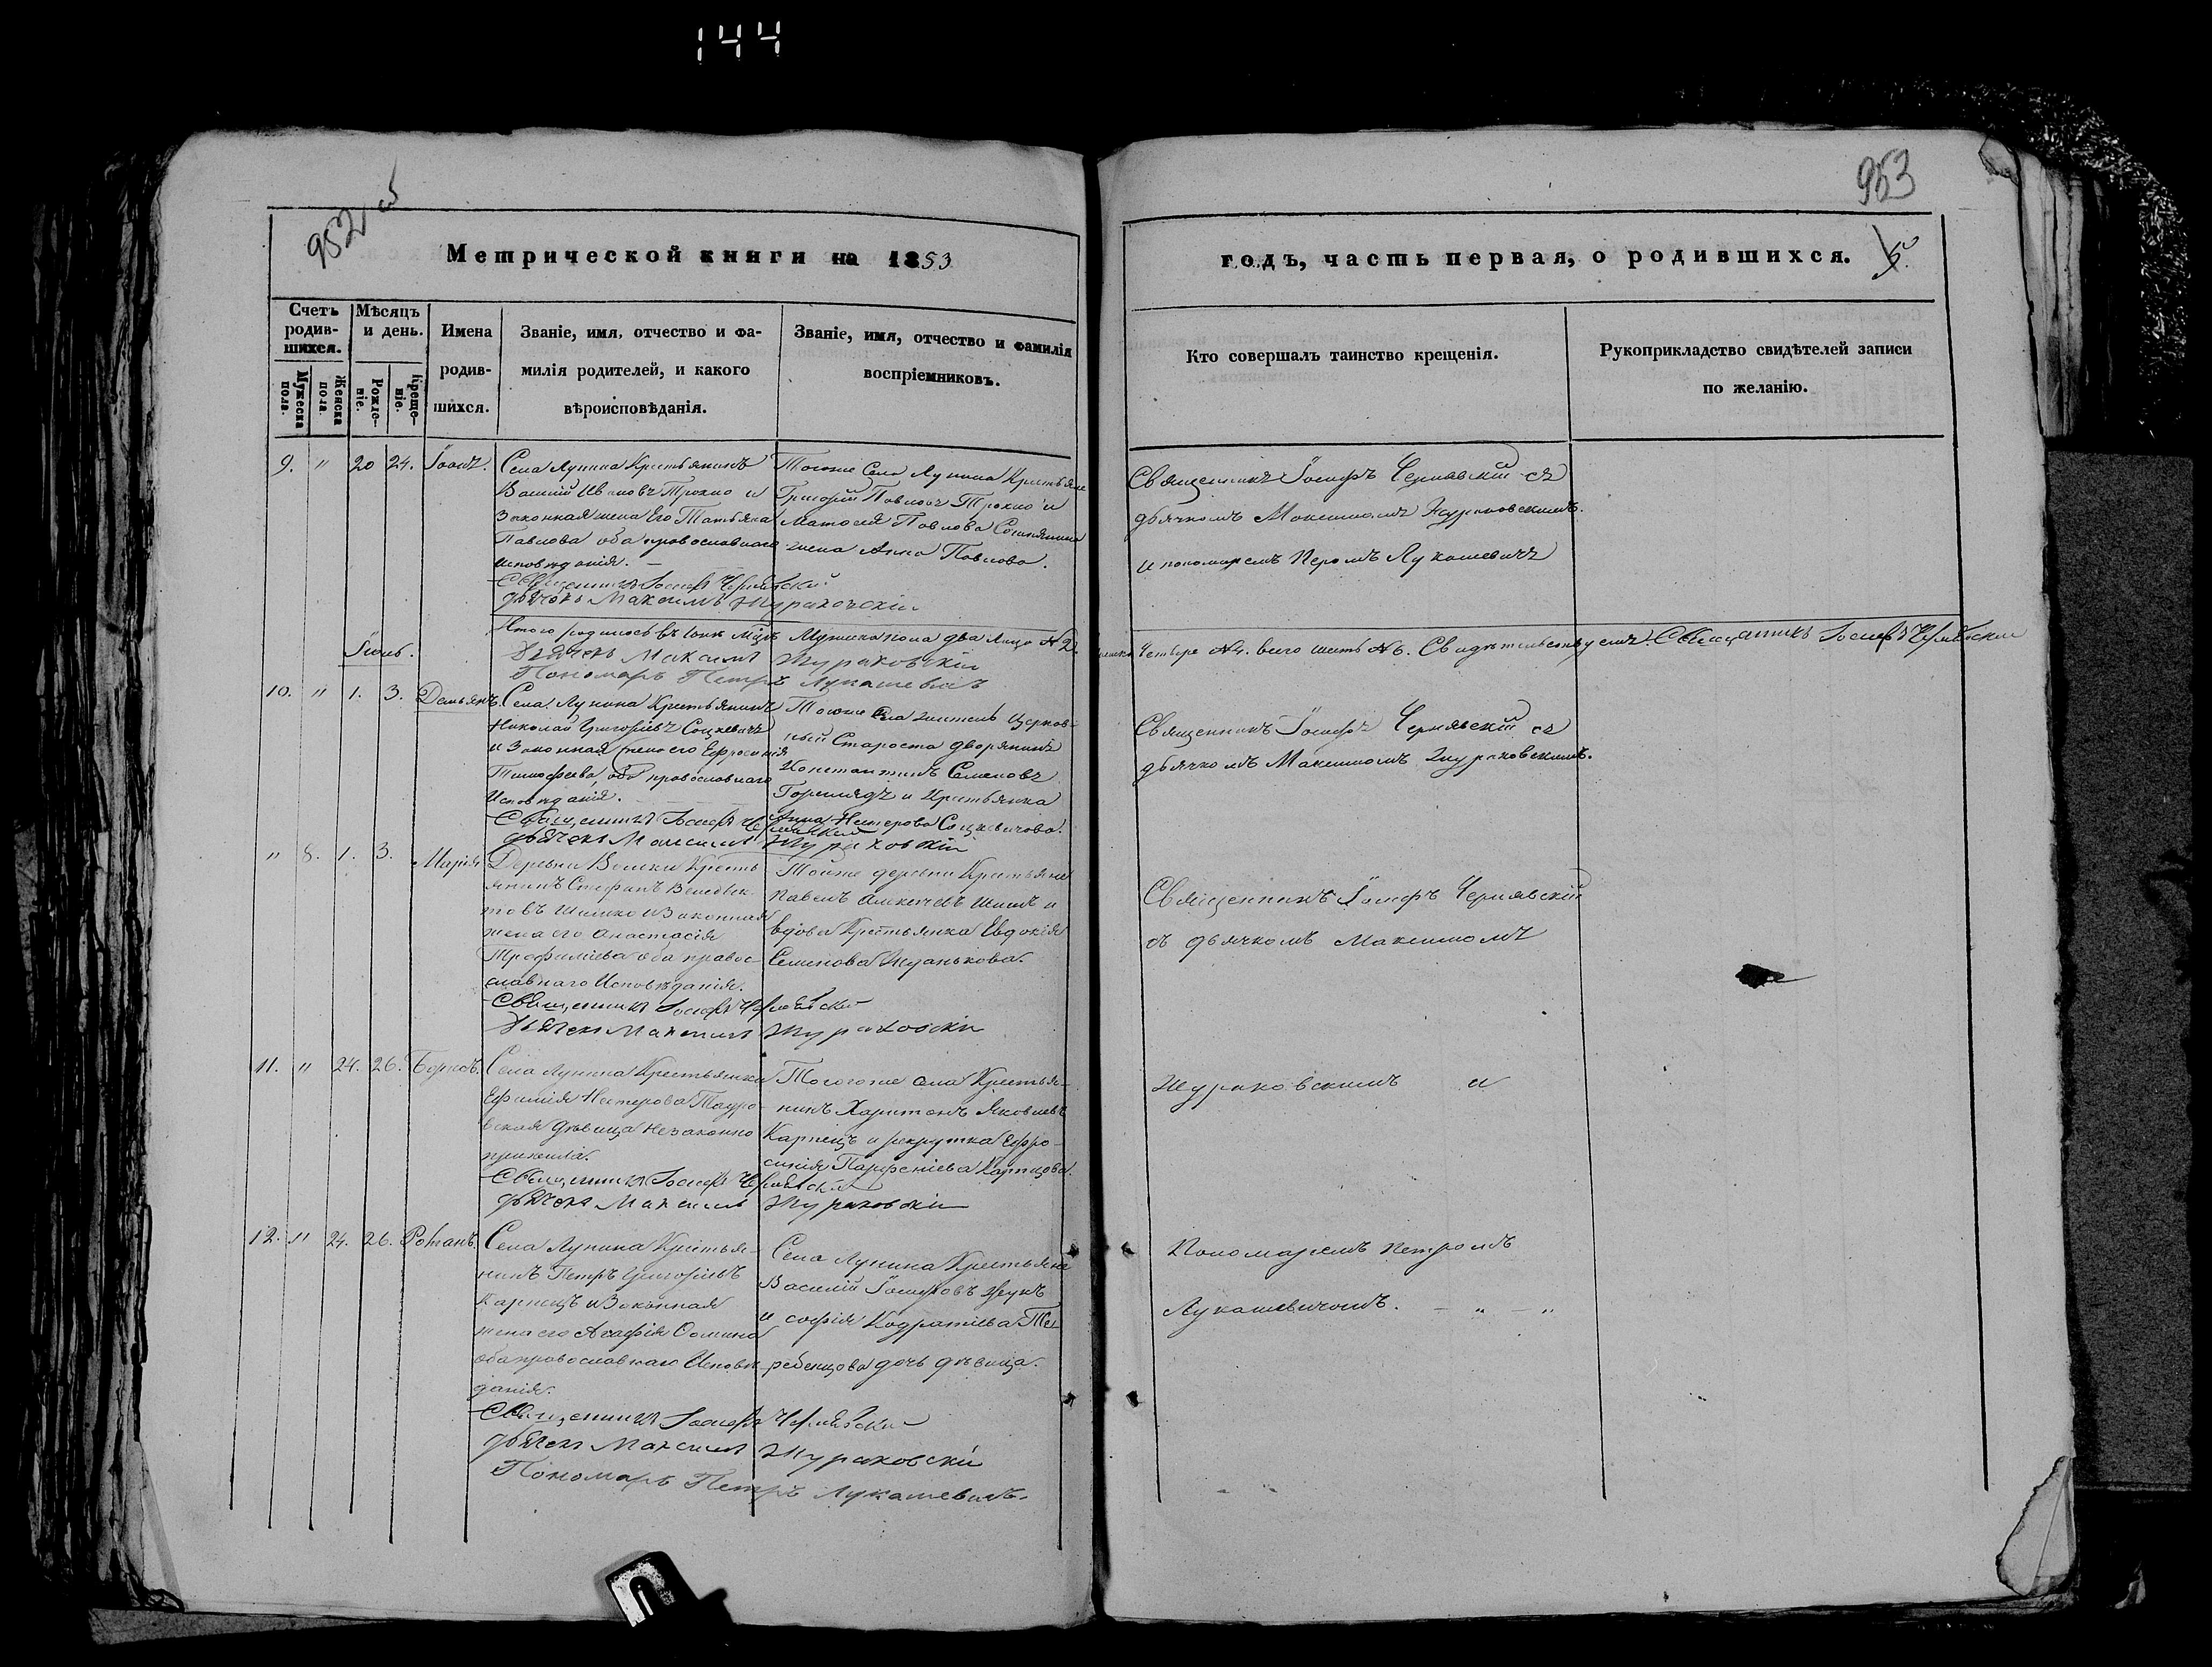 144
952 об
953
Метрической книги на 1853
годъ, часть первая, о родившихся. 5.
Счетъ родив-шихся.
Мужеска пола.
Женска пола.
Мѣсяцъ и день.
Рожде-ніе.
Креще-ніе.
Имена родив-шихся.
Званіе, имя, отчество и фа-
милія родителей, и какого
вѣроисповѣданія.
Званіе, имя, отчество и фамилія
воспріемниковъ.
Кто совершалъ таинство крещенія.
Рукоприкладство свидѣтелей записи
по желанію.
9. " 20 24. Іоанъ.
Села Лунина Крестьянинъ
Василій Ивановъ Трохно и
Законная жена Его Татьяна
Павлова оба православнаго
исповѣданія. —
Священникъ Іосифъ Чернявскій
дьячокъ Максимъ Жураковскій
Тогоже Села Лунина Крестьяне
Григорій Павловъ Трохно и
Павлова
жена Анна Павлова.
Священникъ Іосифъ Чернявскій съ
дьячкомъ Максимомъ Жураковскимъ.
и пономаремъ Перомъ Лукашевичъ
Итого родилось въ Іюнѣ М҃цѣ Мужска пола два лица №2.
четыре №4. всего шесть №6. Свидѣтельствуемъ. Священникъ Іосифъ Чернявскій
Дьячокъ Максимъ Жураковскій
Пономаръ Петръ Лукашевичъ
Іюль.
10. " 1. 3. Демьянъ.
Села Лунина Крестьянинъ
Николай Григорьевъ Соцкевичъ
и Законная жена его Ефросинія
Тимофеева, оба православнаго
Исповѣданія.
Священникъ Іосифъ Чернявскій
дьячокъ Максимъ Жураковскій
Тогоже Села житель церков-
ный Староста дворянинъ
Константинъ Семеновъ
и Крестьянка
Анна Нестерова Соцкевичова.
Священникъ Іосифъ Чернявскій съ
дьячкомъ Максимомъ Жураковскимъ.
" 8. 1. 3. Марія
Деревни Вольки Кресть-
янинъ Стефанъ Венедик-
товъ Шишко и Законная
жена его Анастасія
Трофимьева оба правос-
лавнаго Исповѣданія.
Священникъ Іосифъ Чернявскій
Дьячокъ Максимъ Жураковскій
Тойже деревни Крестьяне
Павелъ Алексѣевъ и
вдова Крестьянка Евдокія
Семенова Жданькова.
Священникъ Іосифъ Чернявскій
съ дьячкомъ Максимомъ
11. " 24. 26. Борисъ.
Села Лунина Крестьянка
Ефимія Нестерова Тауро-
вская дѣвица незаконно
прижила.
Священникъ Іосифъ Чернявскій
дьячокъ Максимъ Жураковскій
Тогоже села Крестья-
нинъ Харитонъ Яковлевъ
Карпецъ и рекрутка Ефро-
синія Парфеніева Карпцова.
Жураковскимъ и
12. " 24. 26. Романъ.
Села Лунина Крестья-
нинъ Петръ Григорьевъ
Карпецъ и Законная
жена его Агафія Фомина
оба православнаго Исповѣ-
данія.
Священникъ Іосифъ Чернявскій
дьячокъ Максимъ Жураковскій
Пономаръ Петръ Лукашевичъ.
Села Лунина Крестьяне
Василій Іосифовъ Жукъ
и софія Кодратіева Те-
ребенцова дочь дѣвица.
Пономаремъ Петромъ
Лукашевичомъ. — " — "